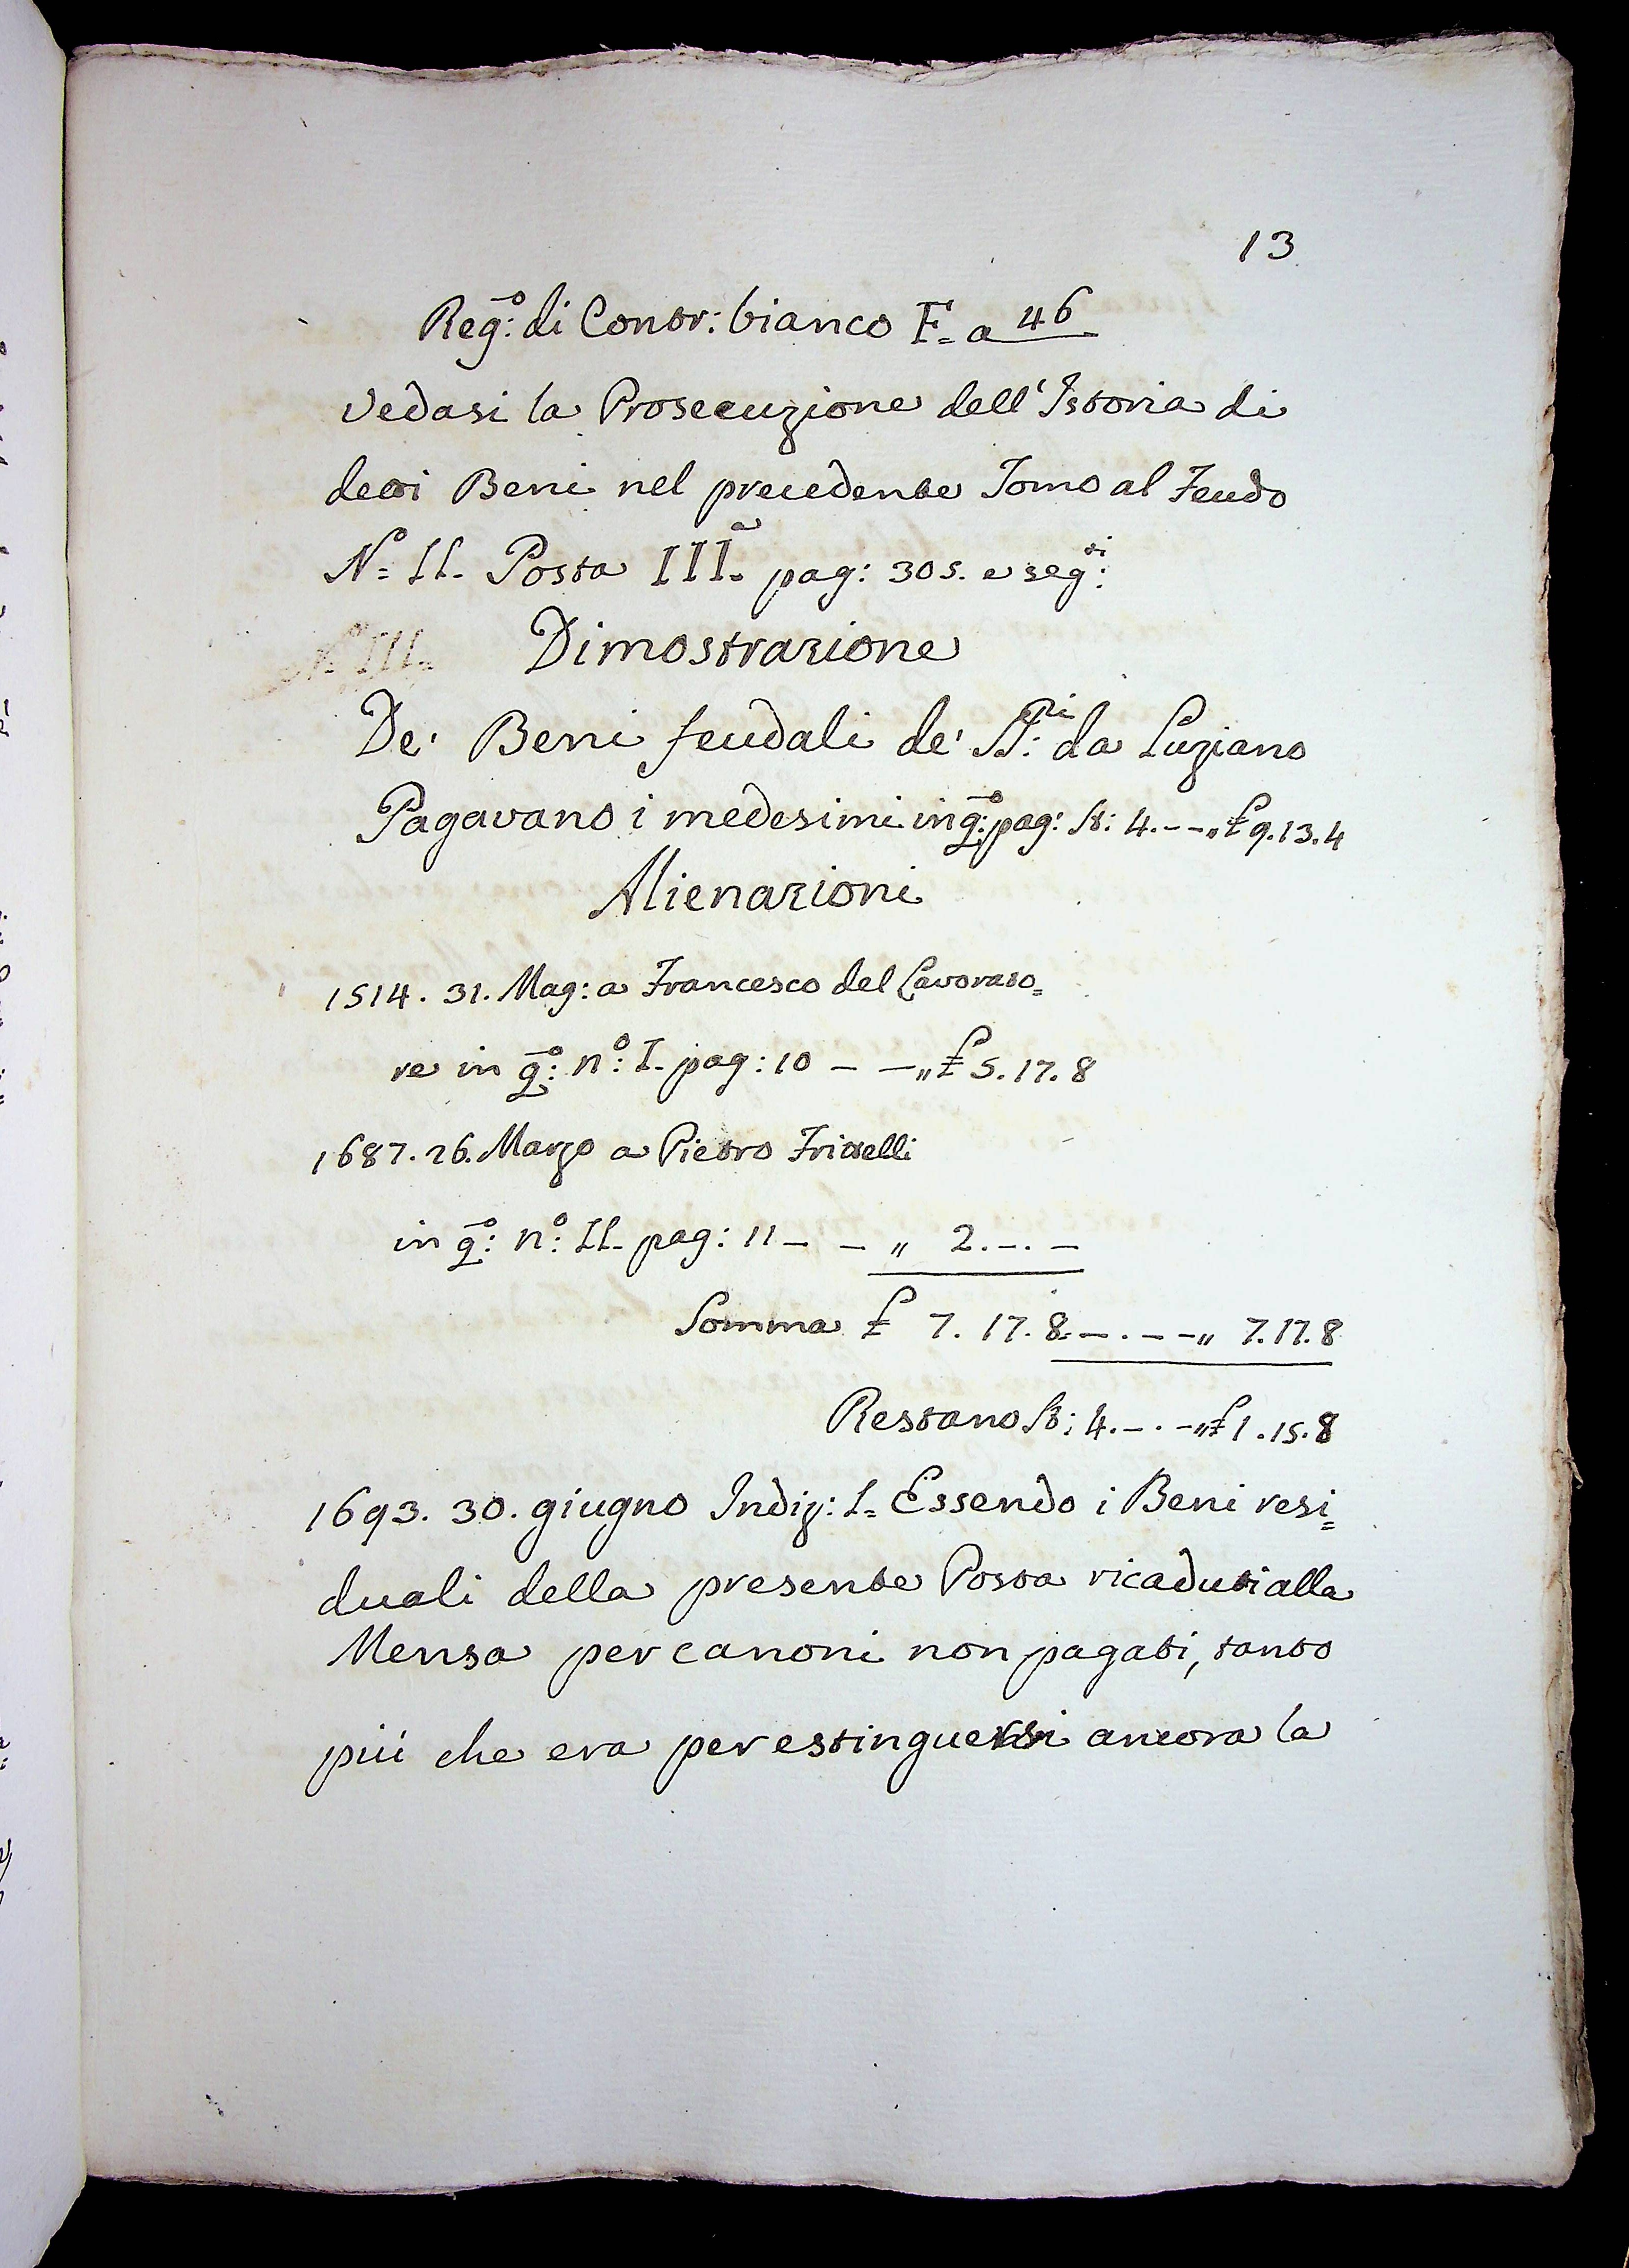 13
Reg:º di Contr: bianco F= a 46
Vedasi la Prosecuzione dell'Istoria di
detti Beni nel precedente Tomo al Feudo
Nº II. Posta III.ª pag: 305. e seg:ti
Nº III. Dimostrazione
De' Beni feudali de' da Luziano
Pagavano i medesimi in q:º pag: St: 4. – – „ £ 9.13.4
Alienazioni
1514. 31. Mag: a Francesco del Lavorato=
re in q:º nº: I. pag: 10 – – „ £ 5.17.8
1687. 26. Marzo a Pietro Frittelli
in q:º nº: II. pag: 11 – – „ 2. –. –
Somma £ 7. 17. 8. –. – – „ 7.17.8
Restano St: 4. –. – „ £ 1.15.8
1693. 30. giugno Indiz: I= Essendo i Beni resi=
duali della presente Posta ricaduti alla
Mensa per canoni non pagati, tanto
più che era per estinguersi ancora la